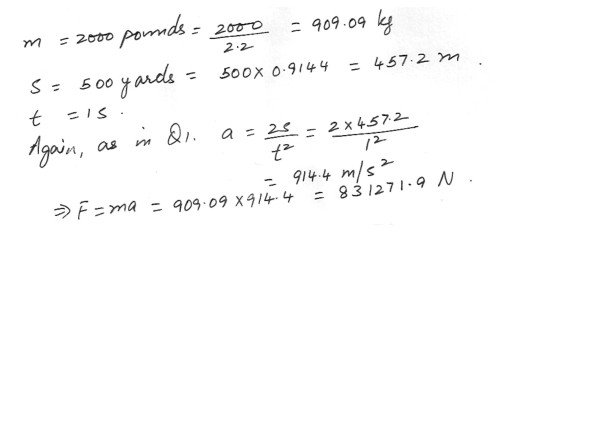 m = 2000 pounds = 2000/2.2 = 909.09 kg
S = 500 yards = 500 x 0.9144 = 457.2 m.
t = 1s.
Again, as in Q1. a = 2s/t² = 2 x 457.2/1²
= 914.4 m/s²
⇒ F = ma = 909.09 x 914.4 = 831271.9 N.